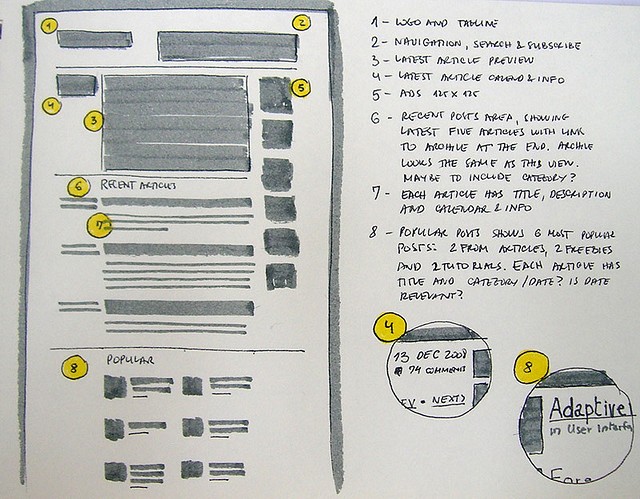 1
2
4
3
5
6 RECENT ARTICLES
7
8 POPULAR
1 - LOGO AND TAGLINE
2 - NAVIGATION, SEARCH & SUBSCRIBE
3 - LATEST ARTICLE PREVIEW
4 - LATEST ARTICLE CALEND & INFO
5 - ADS 125 x 125
6 - RECENT POSTS AREA, SHOWING
LATEST FIVE ARTICLES WITH LINK
TO ARCHIVE AT THE END. ARCHIVE
LOOKS THE SAME AS THIS VIEW.
MAYBE TO INCLUDE CATEGORY?
7 - EACH ARTICLE HAS TITLE, DESCRIPTION
AND CALENDAR & INFO
8 - POPULAR POSTS SHOWS 6 MOST POPULAR
POSTS: 2 FROM ARTICLES, 2 FREEBIES
AND 2 TUTORIALS. EACH ARTICLE HAS
TITLE AND CATEGORY/DATE? IS DATE
RELEVANT?
4
13 DEC 2008
74 COMMENTS
EV • NEXT>
8
Adaptive
in User Interfa